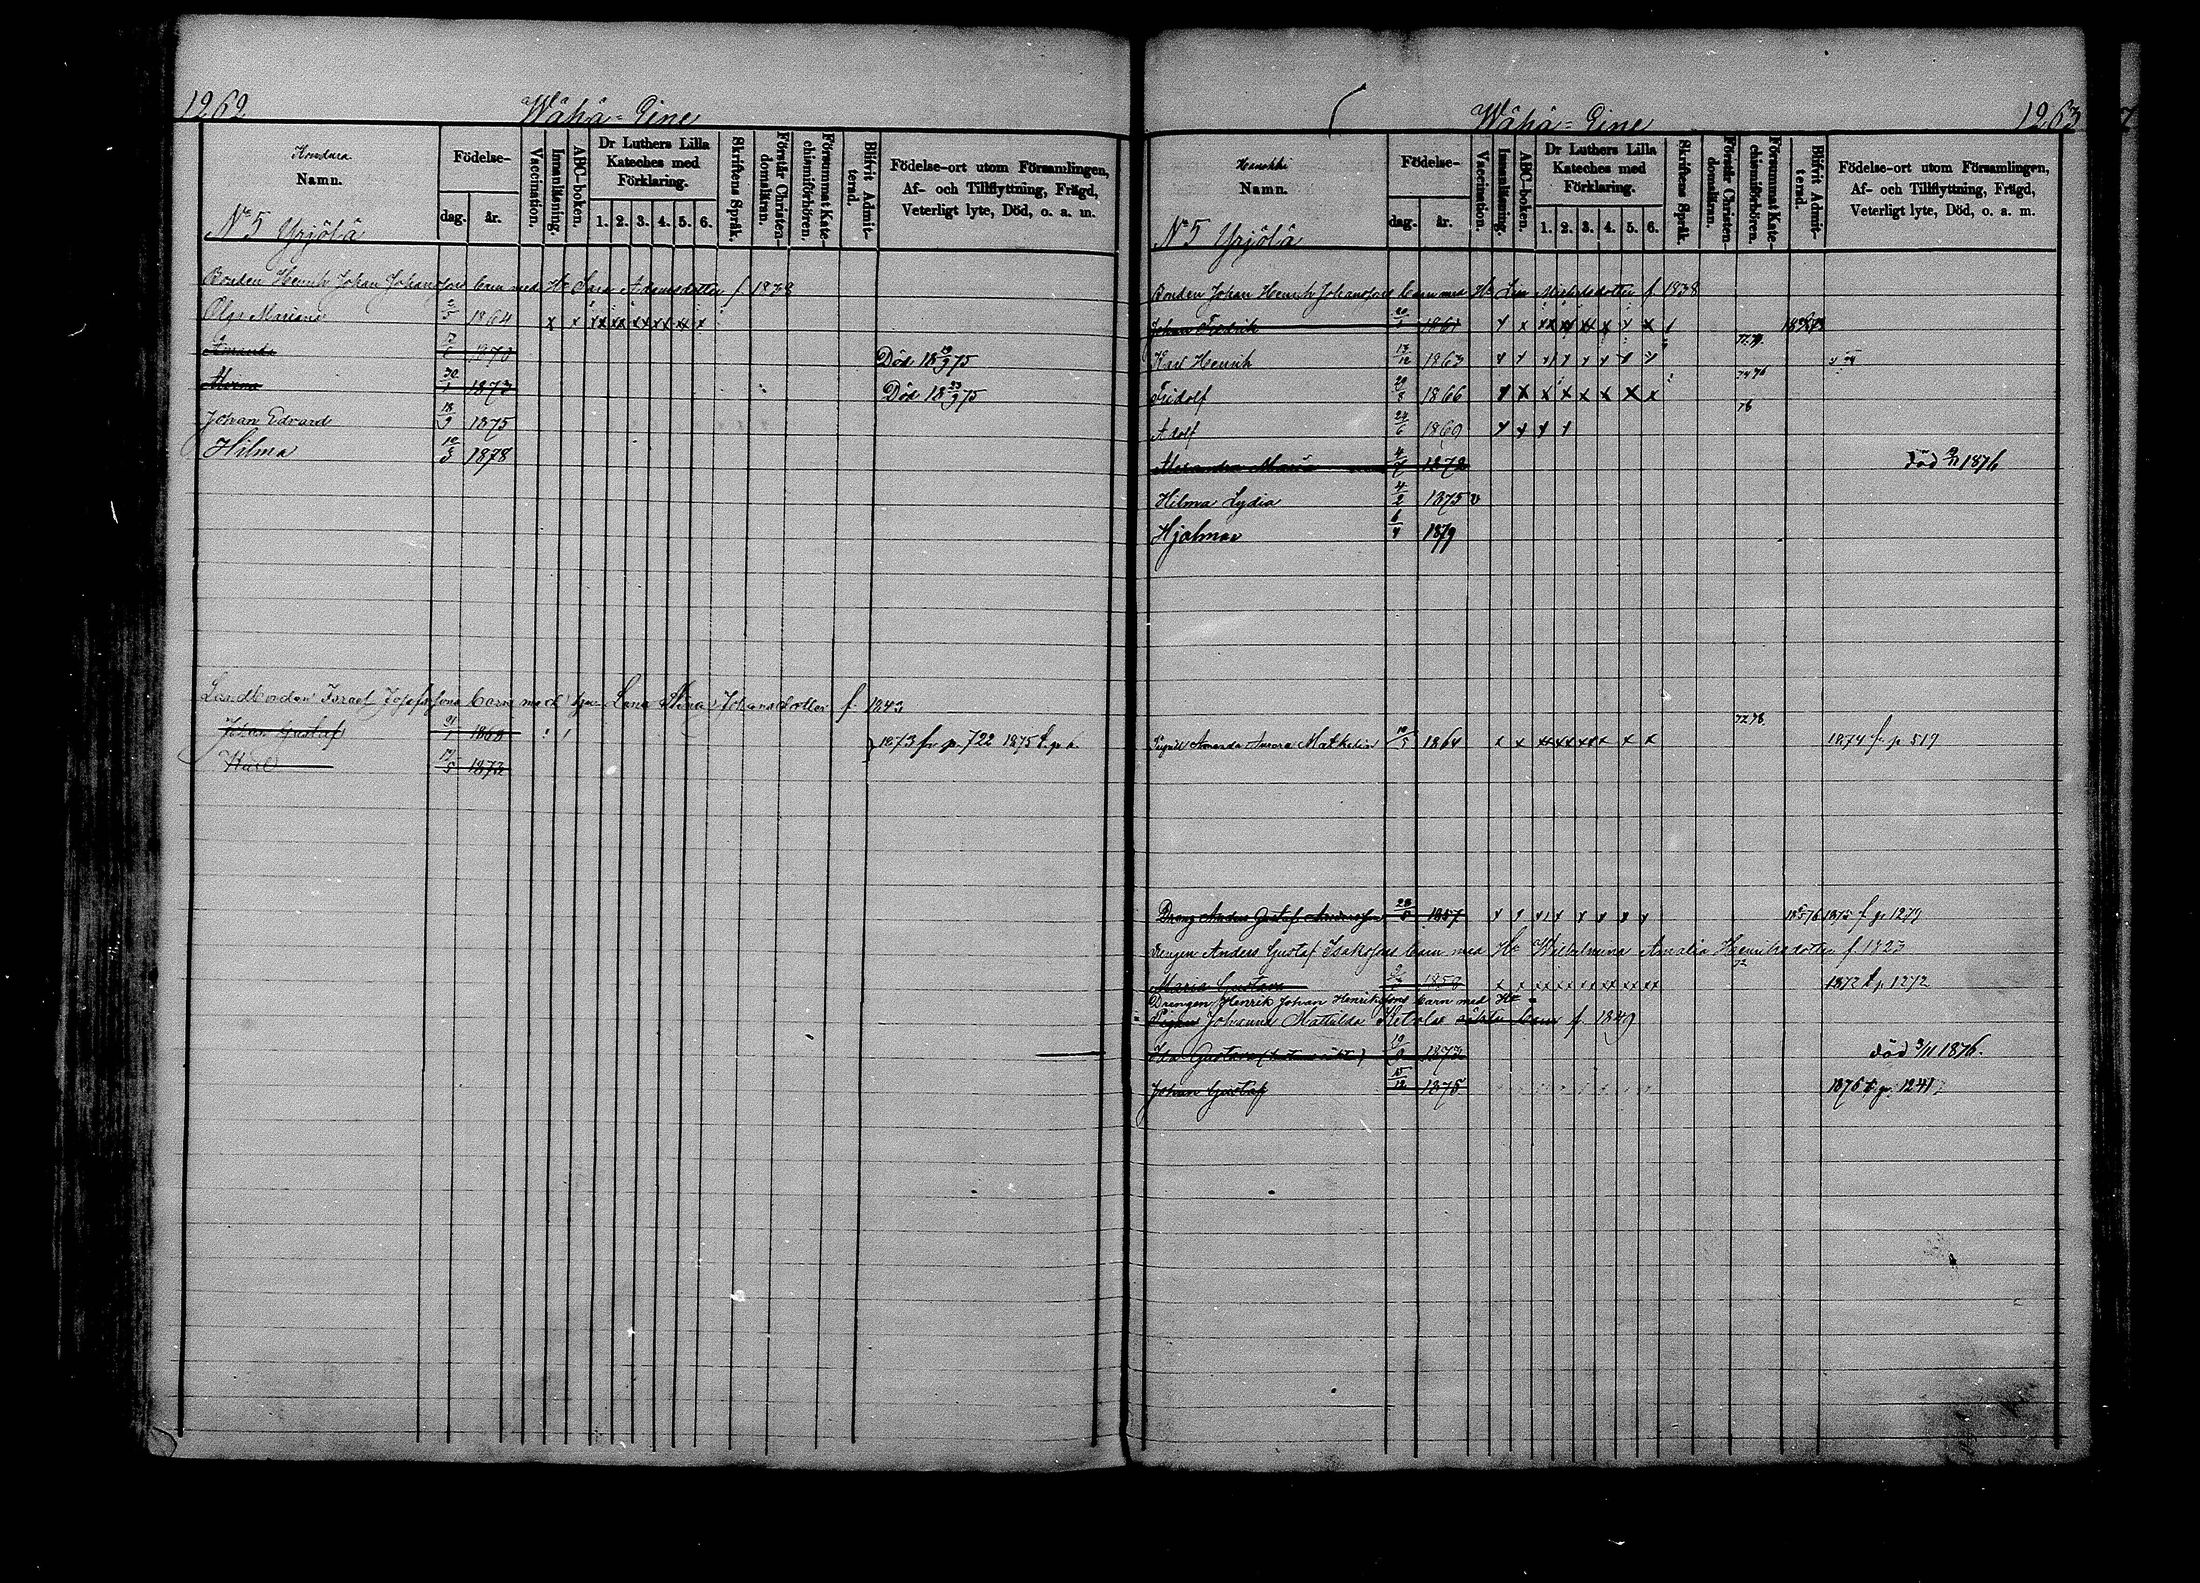 1262
Wähä-Eine
Namn.
Födelse-
dag.
år.
Vaccination.
Innanläsning.
ABC-boken.
Dr Luthers Lilla Kateches med Förklaring.
1. 2. 3. 4. 5. 6.
Skriftens Språk.
Förstår Christendomsläran.
Försummat Katechismiförhören.
Blifvit Admitterad.
Födelse-ort utom Församlingen,
Af- och Tillflyttning, Frägd,
Veterligt lyte, Död, o. a. m.
No 5 Yrjölä
Bonden Henrik Johan Johanssons barn med Hu Sara Adamsdotter f 1838
Olga Mariana 1864
Amanda Död 18 19/9 75
30/1 1873 Död 18 23/9 75
Johan Edvard 18/9 1875
Hilma 10/3 1878
Landbonden Israel Josefssons barn med hu Lena Stina Johansdotter f. 1843
Johan Gustaf 1868 1873 fr p. 722 1875 t. p.
Karl 17/5 1873
1263
Wähä-Eine
Heikki
Namn.
Födelse-
dag.
år.
Vaccination.
Innanläsning.
ABC-boken.
Dr Luthers Lilla Kateches med Förklaring.
1. 2. 3. 4. 5. 6.
Skriftens Språk.
Förstår Christendomsläran.
Försummat Katechismiförhören.
Blifvit Admitterad.
Födelse-ort utom Församlingen,
Af- och Tillflyttning, Frägd,
Veterligt lyte, Död, o. a. m.
No 5 Yrjölä
Bonden Johan Henrik Johanssons barn med Hu Lisa Michelsdotter f 1838
Johan Fredrik 1861
Karl Henrik 13/12 1863 77.79.
Fridolf 29/8 1866 74 76
Adolf 24/6 1869 76
Alexandra Maria 1872 död 1876
Hilma Lydia 4/2 1875 v
Hjalmar 6/4 1879
Amanda Aurora 10/5 1864 72.78. 1874 fr. p 519
Dräng Anders Gustaf Andersson 28/5 1857 1875 f. p. 1279
Drengen Anders Gustaf Isakssons barn med Hu Wilhelmina Amalia Henriksdotter f. 1823
Maria Gustava 1859 72 1872 t. p. 1272
Drengen Henrik Johan Henrikssons barn med Hu
Pigan Johanna Mathilda oäkta barn f. 1849
Ida Gustava 10/9 1873 död 3/11 1876.
Johan Gustaf 15/12 1875 1876 t. p. 1241